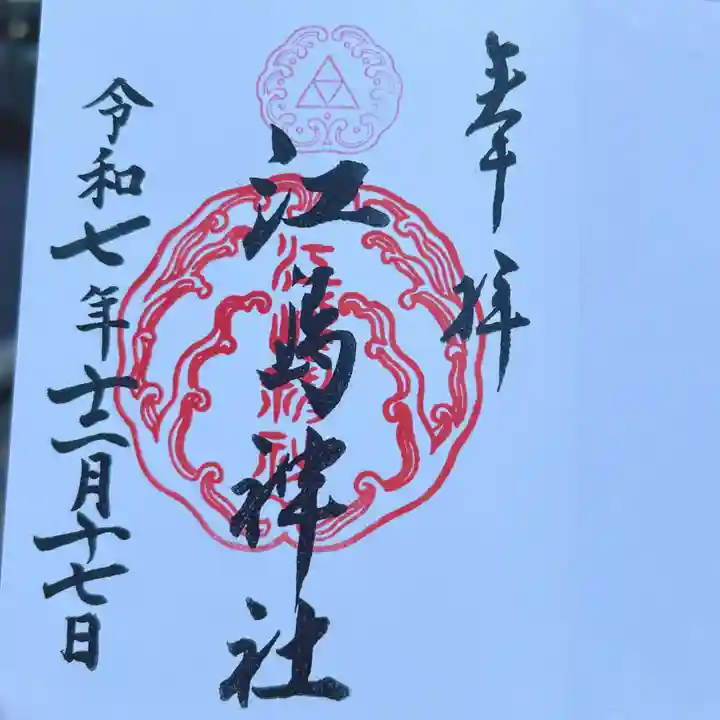 奉拝
江島神社
令和七年十二月十七日